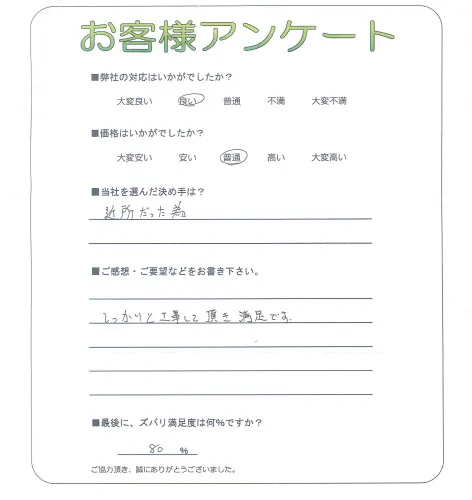 お客様アンケート
■弊社の対応はいかがでしたか？
大変良い　良い　普通　不満　大変不満
■価格はいかがでしたか？
大変安い　安い　普通　高い　大変高い
■当社を選んだ決め手は？
近所だった為
■ご感想・ご要望などをお書き下さい。
しっかりと工事して頂き満足です。
■最後に、ズバリ満足度は何％ですか？
80 ％
ご協力頂き、誠にありがとうございました。